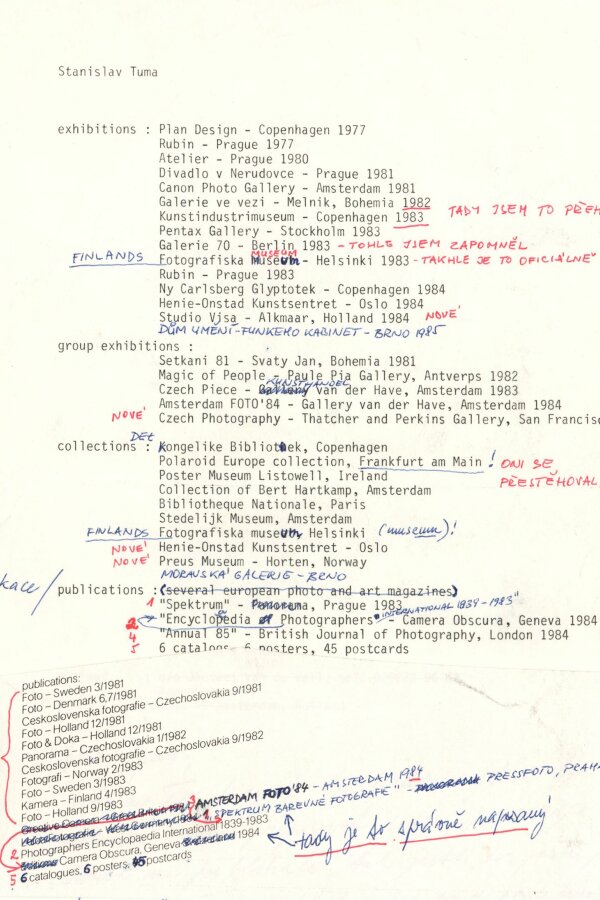 Stanislav Tuma
exhibitions : Plan Design - Copenhagen 1977
Rubin - Prague 1977
Atelier - Prague 1980
Divadlo v Nerudovce - Prague 1981
Canon Photo Gallery - Amsterdam 1981
Galerie ve vezi - Melnik, Bohemia 1982
Kunstindustrimuseum - Copenhagen 1983 TADY JSEM TO PŘEH
Pentax Gallery - Stockholm 1983
Galerie 70 - Berlin 1983 - TOHLE JSEM ZAPOMNĚL
MUSEUM
FINLANDS Fotografiska Museum - Helsinki 1983 - TAKHLE JE TO OFICIÁLNĚ
Rubin - Prague 1983
Ny Carlsberg Glyptotek - Copenhagen 1984
Henie-Onstad Kunstsentret - Oslo 1984
Studio Visa - Alkmaar, Holland 1984 NOVÉ
DŮM UMĚNÍ - FUNKEHO KABINET - BRNO 1985
group exhibitions :
Setkani 81 - Svaty Jan, Bohemia 1981
Magic of People - Paule Pia Gallery, Antverps 1982
KUNSTHANDEL
Czech Piece - Gallery van der Have, Amsterdam 1983
Amsterdam FOTO'84 - Gallery van der Have, Amsterdam 1984
NOVÉ Czech Photography - Thatcher and Perkins Gallery, San Francisc
DET
collections : Kongelike Bibliotek, Copenhagen
Polaroid Europe collection, Frankfurt am Main ! ONI SE
Poster Museum Listowell, Ireland PŘESTĚHOVAL
Collection of Bert Hartkamp, Amsterdam
Bibliotheque Nationale, Paris
Stedelijk Museum, Amsterdam
FINLANDS Fotografiska museum Helsinki (museum)!
NOVÉ Henie-Onstad Kunstsentret - Oslo
NOVÉ Preus Museum - Horten, Norway
MORAVSKÁ GALERIE - BRNO
kace/ publications : (several european photo and art magazines)
1 "Spektrum" - Panorama, Prague 1983
INTERNATIONAL 1839 - 1983"
2 "Encyclopedia of Photographers" - Camera Obscura, Geneva 1984
4 "Annual 85" - British Journal of Photography, London 1984
5 6 catalogs, 6 posters, 45 postcards
publications:
Foto – Sweden 3/1981
Foto – Denmark 6,7/1981
Ceskoslovenska fotografie – Czechoslovakia 9/1981
Foto – Holland 12/1981
Foto & Doka – Holland 12/1981
Panorama – Czechoslovakia 1/1982
Ceskoslovenska fotografie – Czechoslovakia 9/1982
Fotografi – Norway 2/1983
Foto – Sweden 3/1983
Kamera – Finland 4/1983
Foto – Holland 9/1983
3 AMSTERDAM FOTO '84 - AMSTERDAM 1984
1 "SPEKTRUM BAREVNÉ FOTOGRAFIE" - PRESSFOTO, PRAHA
2 Photographers Encyclopaedia International 1839-1983
Camera Obscura, Geneva 1984
5 6 catalogues, 6 posters, 45 postcards
tady je to správně napsaný!